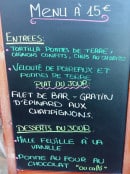 MENU À 15€
ENTREES:
- TORTILLA POMMES DE TERRE,
OIGNONS CONFITS,
- VELOUTÉ DE POIREAUX ET
POMMES DE TERRE
PLAT DU JOUR:
FILET DE BAR - GRATIN
D'ÉPINARD AUX
CHAMPIGNONS.
DESSERTS DU JOUR:
- MILLE FEUILLE À LA
VANILLE
- POMME AU FOUR AU
CHOCOLAT "OU café"